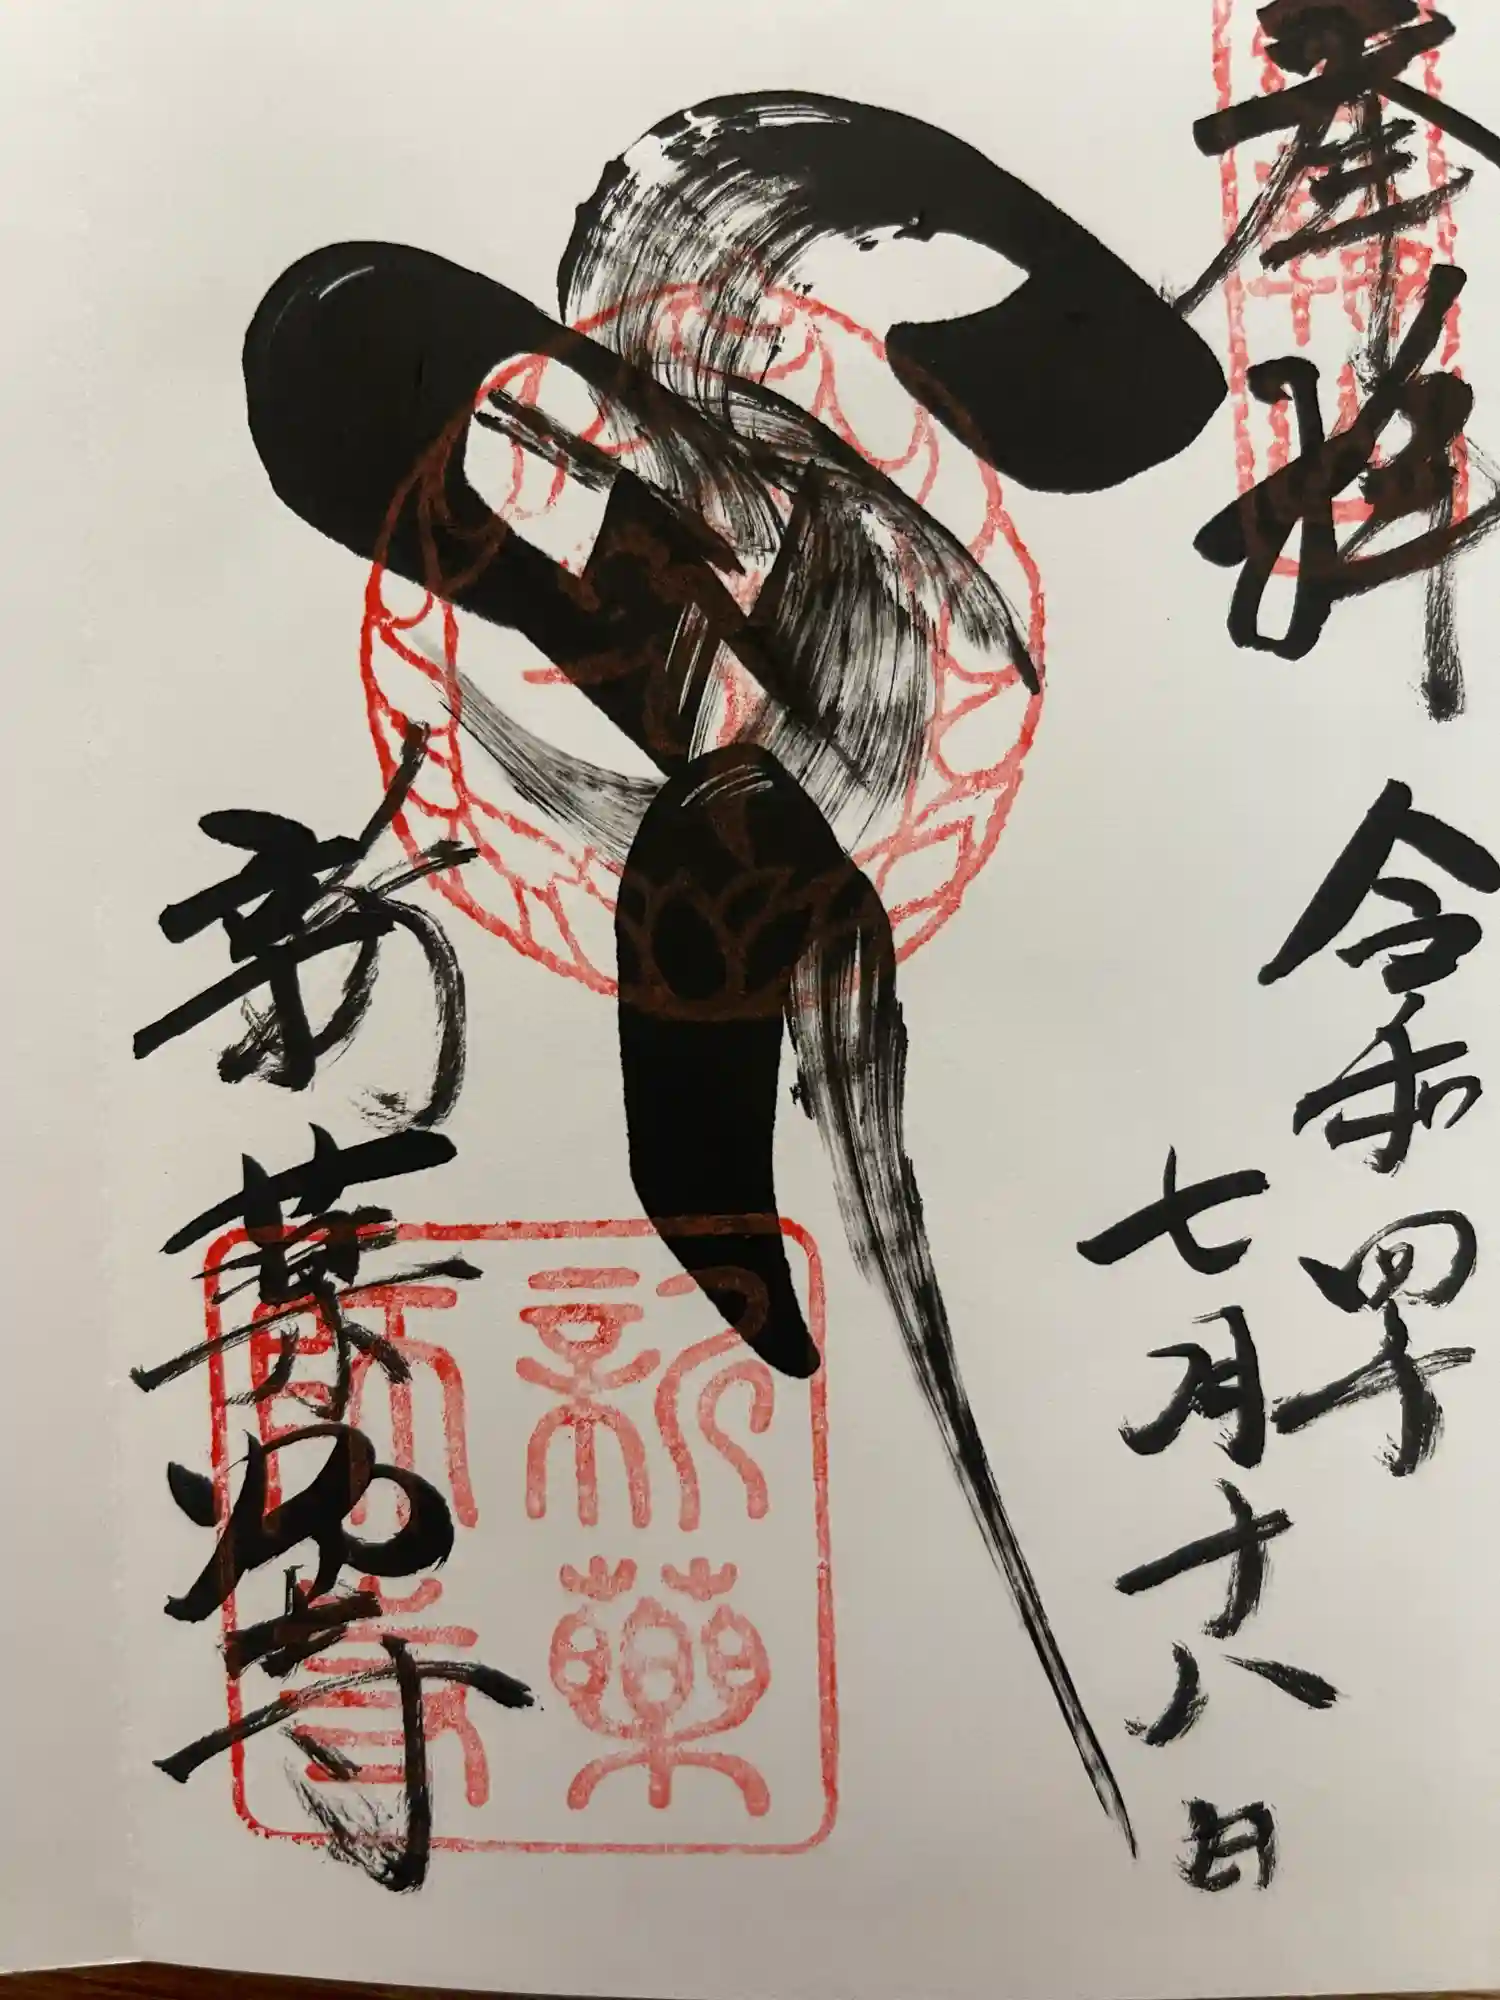 奉拝 令和四年
七月十八日
新薬師寺
新薬
師寺